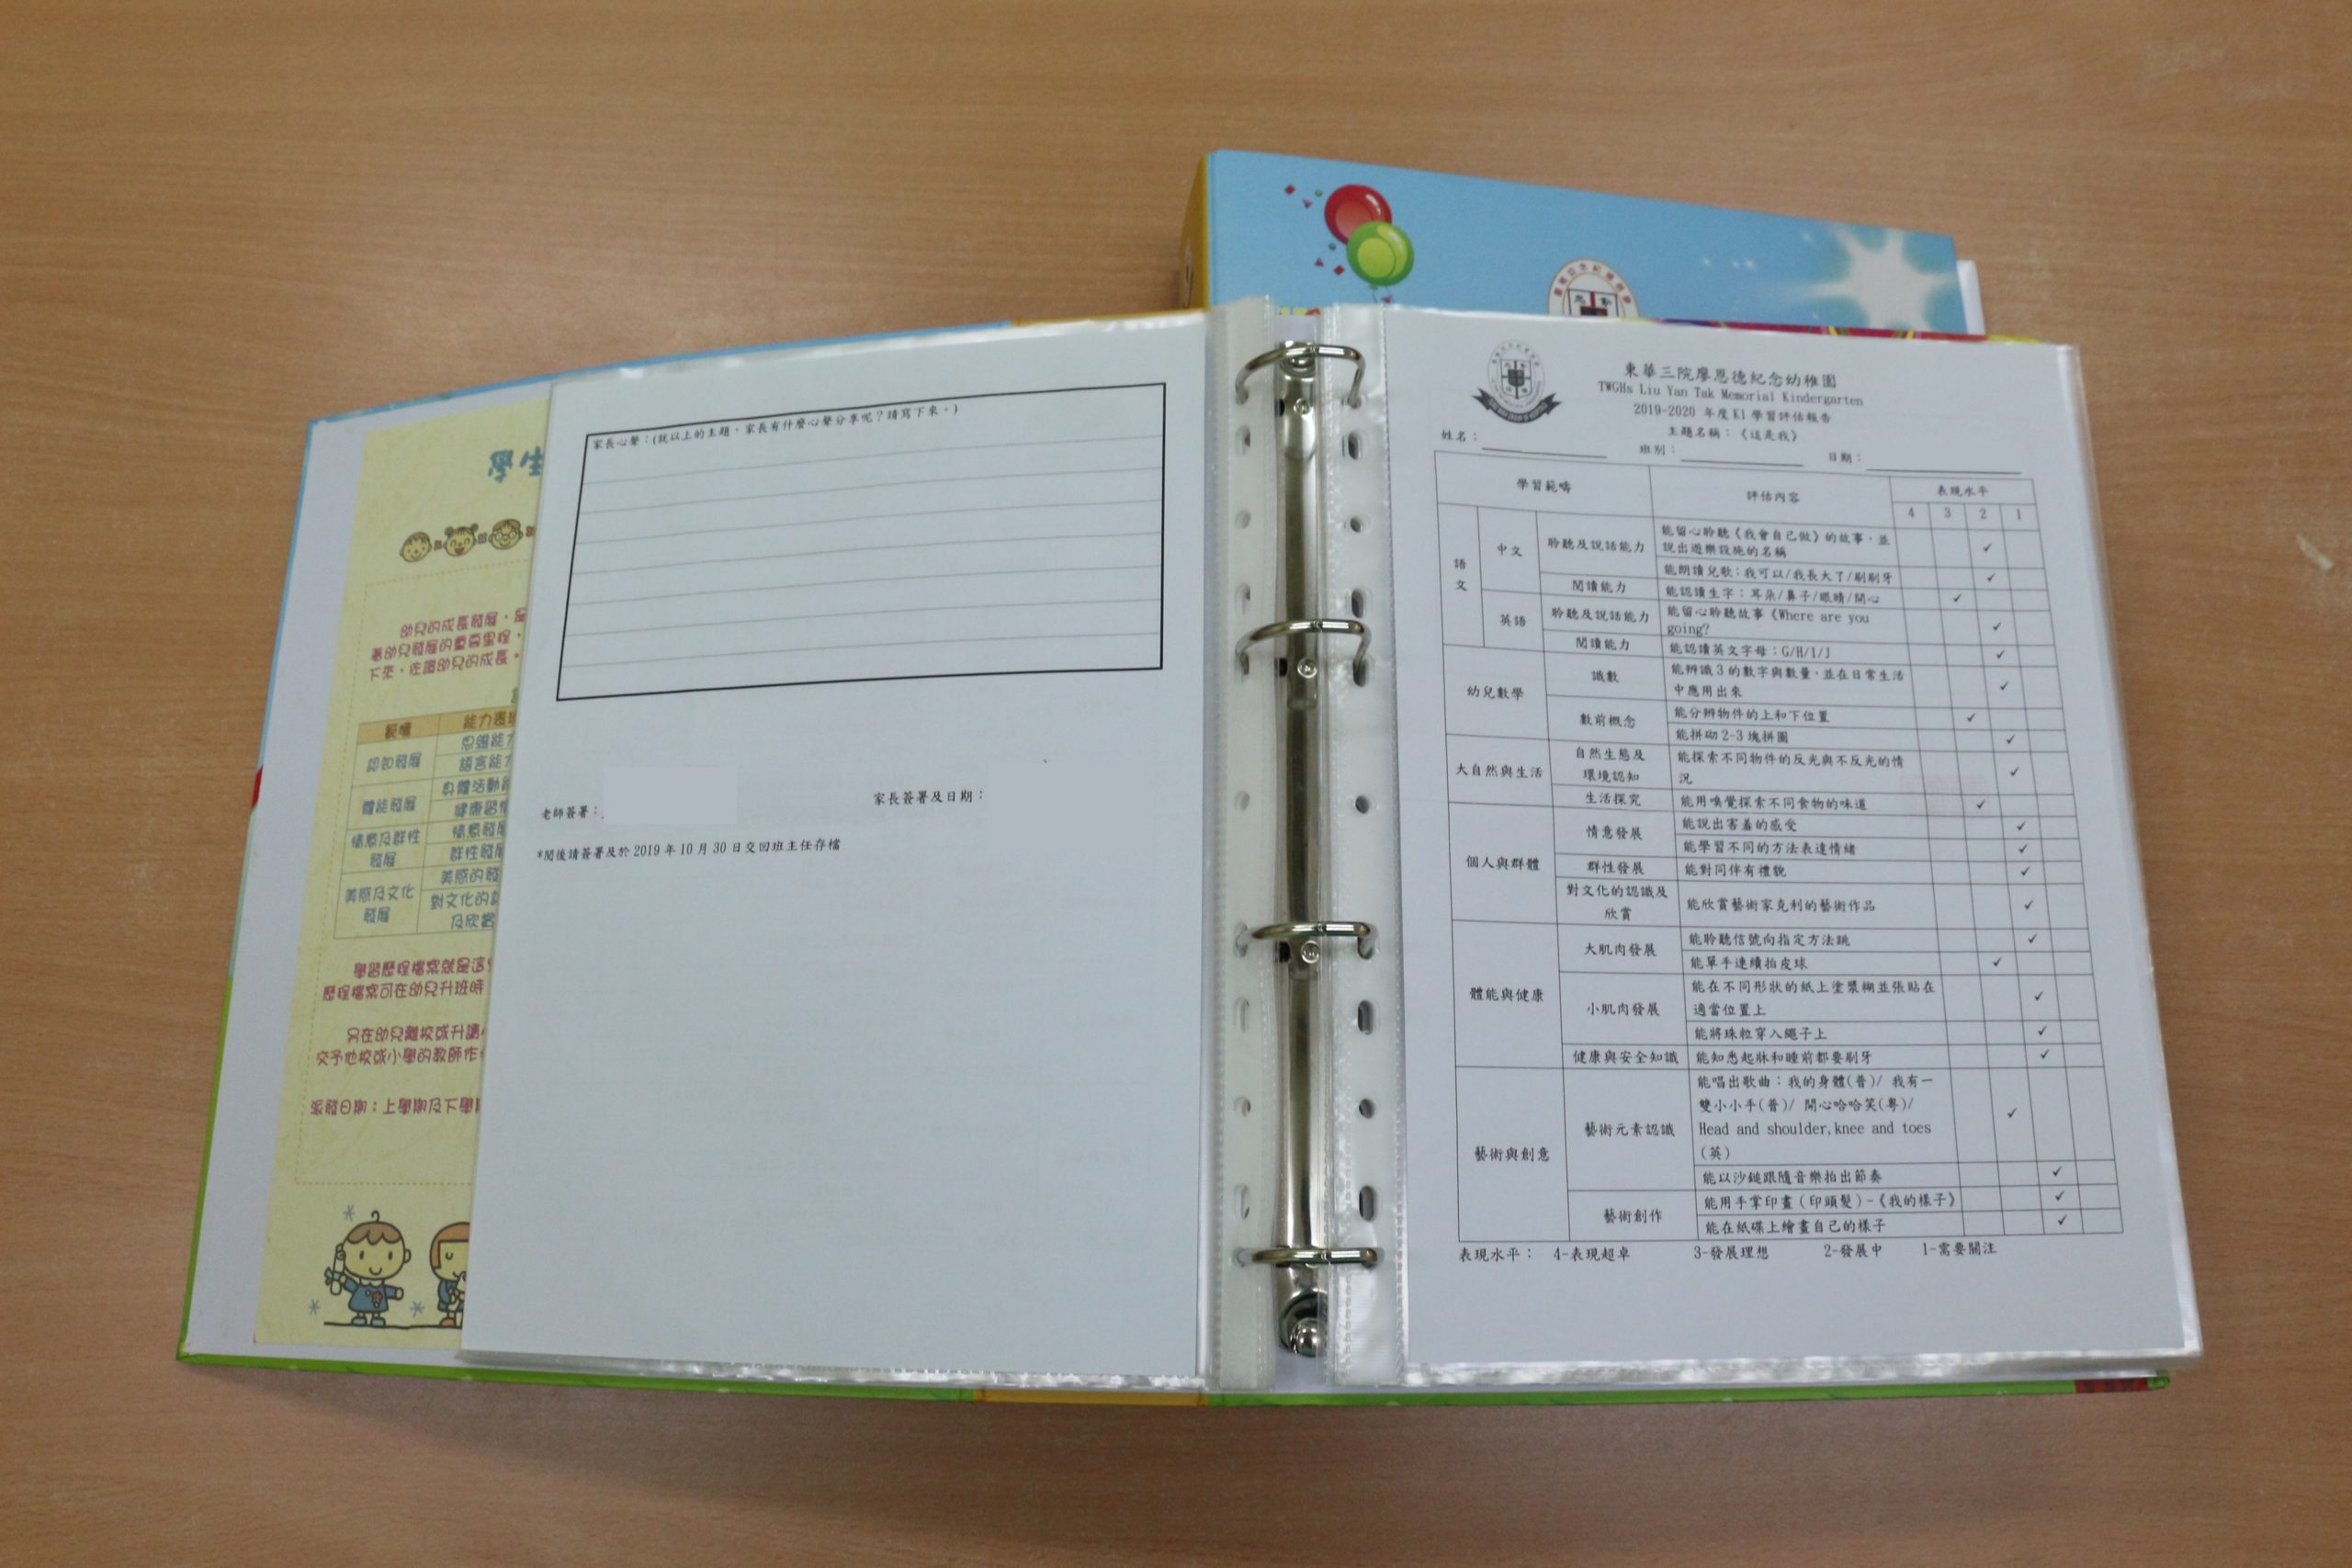 學生
幼兒的成長發展，是
著幼兒發展的重要里程，
下來，佐證幼兒的成長。
範疇 能力表現
認知發展 思維能力
語言能力
體能發展 身體活動能
健康習慣
情意及群性發展 情意發展
群性發展
美感及文化發展 美感的發
對文化的認
及欣賞
學習歷程檔案就是這
歷程檔案可在幼兒升班時
另在幼兒離校或升讀小
交予他校或小學的教師作
派發日期：上學期及下學期
家長心聲：(就以上的主題，家長有什麼心聲分享呢？請寫下來。)
老師簽署：
家長簽署及日期：
*閱後請簽署及於 2019 年 10 月 30 日交回班主任存檔
東華三院廖恩德紀念幼稚園
TWGHs Liu Yan Tak Memorial Kindergarten
2019-2020 年度 K1 學習評估報告
主題名稱：《這是我》
姓名： 班別： 日期：
學習範疇 評估內容 表現水平
4 3 2 1
語文 中文 聆聽及說話能力 能留心聆聽《我會自己做》的故事，並
說出遊樂設施的名稱 ✓
能朗讀兒歌：我可以/我長大了/刷刷牙 ✓
閱讀能力 能認讀生字：耳朵/鼻子/眼睛/開心 ✓
英語 聆聽及說話能力 能留心聆聽故事《Where are you
going? ✓
閱讀能力 能認讀英文字母：G/H/I/J ✓
幼兒數學 識數 能辨識 3 的數字與數量，並在日常生活
中應用出來 ✓
數前概念 能分辨物件的上和下位置 ✓
能拼砌 2-3 塊拼圖 ✓
大自然與生活 自然生態及
環境認知 能探索不同物件的反光與不反光的情
況 ✓
生活探究 能用嗅覺探索不同食物的味道 ✓
個人與群體 情意發展 能說出害羞的感受 ✓
能學習不同的方法表達情緒 ✓
群性發展 能對同伴有禮貌 ✓
對文化的認識及
欣賞 能欣賞藝術家克利的藝術作品 ✓
體能與健康 大肌肉發展 能聆聽信號向指定方法跳 ✓
能單手連續拍皮球 ✓
小肌肉發展 能在不同形狀的紙上塗漿糊並張貼在
適當位置上 ✓
能將珠粒穿入繩子上 ✓
健康與安全知識 能知悉起牀和睡前都要刷牙 ✓
藝術與創意 藝術元素認識 能唱出歌曲：我的身體(普)/ 我有一
雙小小手(普)/ 開心哈哈笑(粵)/
Head and shoulder,knee and toes
(英) ✓
能以沙鎚跟隨音樂拍出節奏 ✓
藝術創作 能用手掌印畫（印頭髮）-《我的樣子》 ✓
能在紙碟上繪畫自己的樣子 ✓
表現水平： 4-表現超卓 3-發展理想 2-發展中 1-需要關注